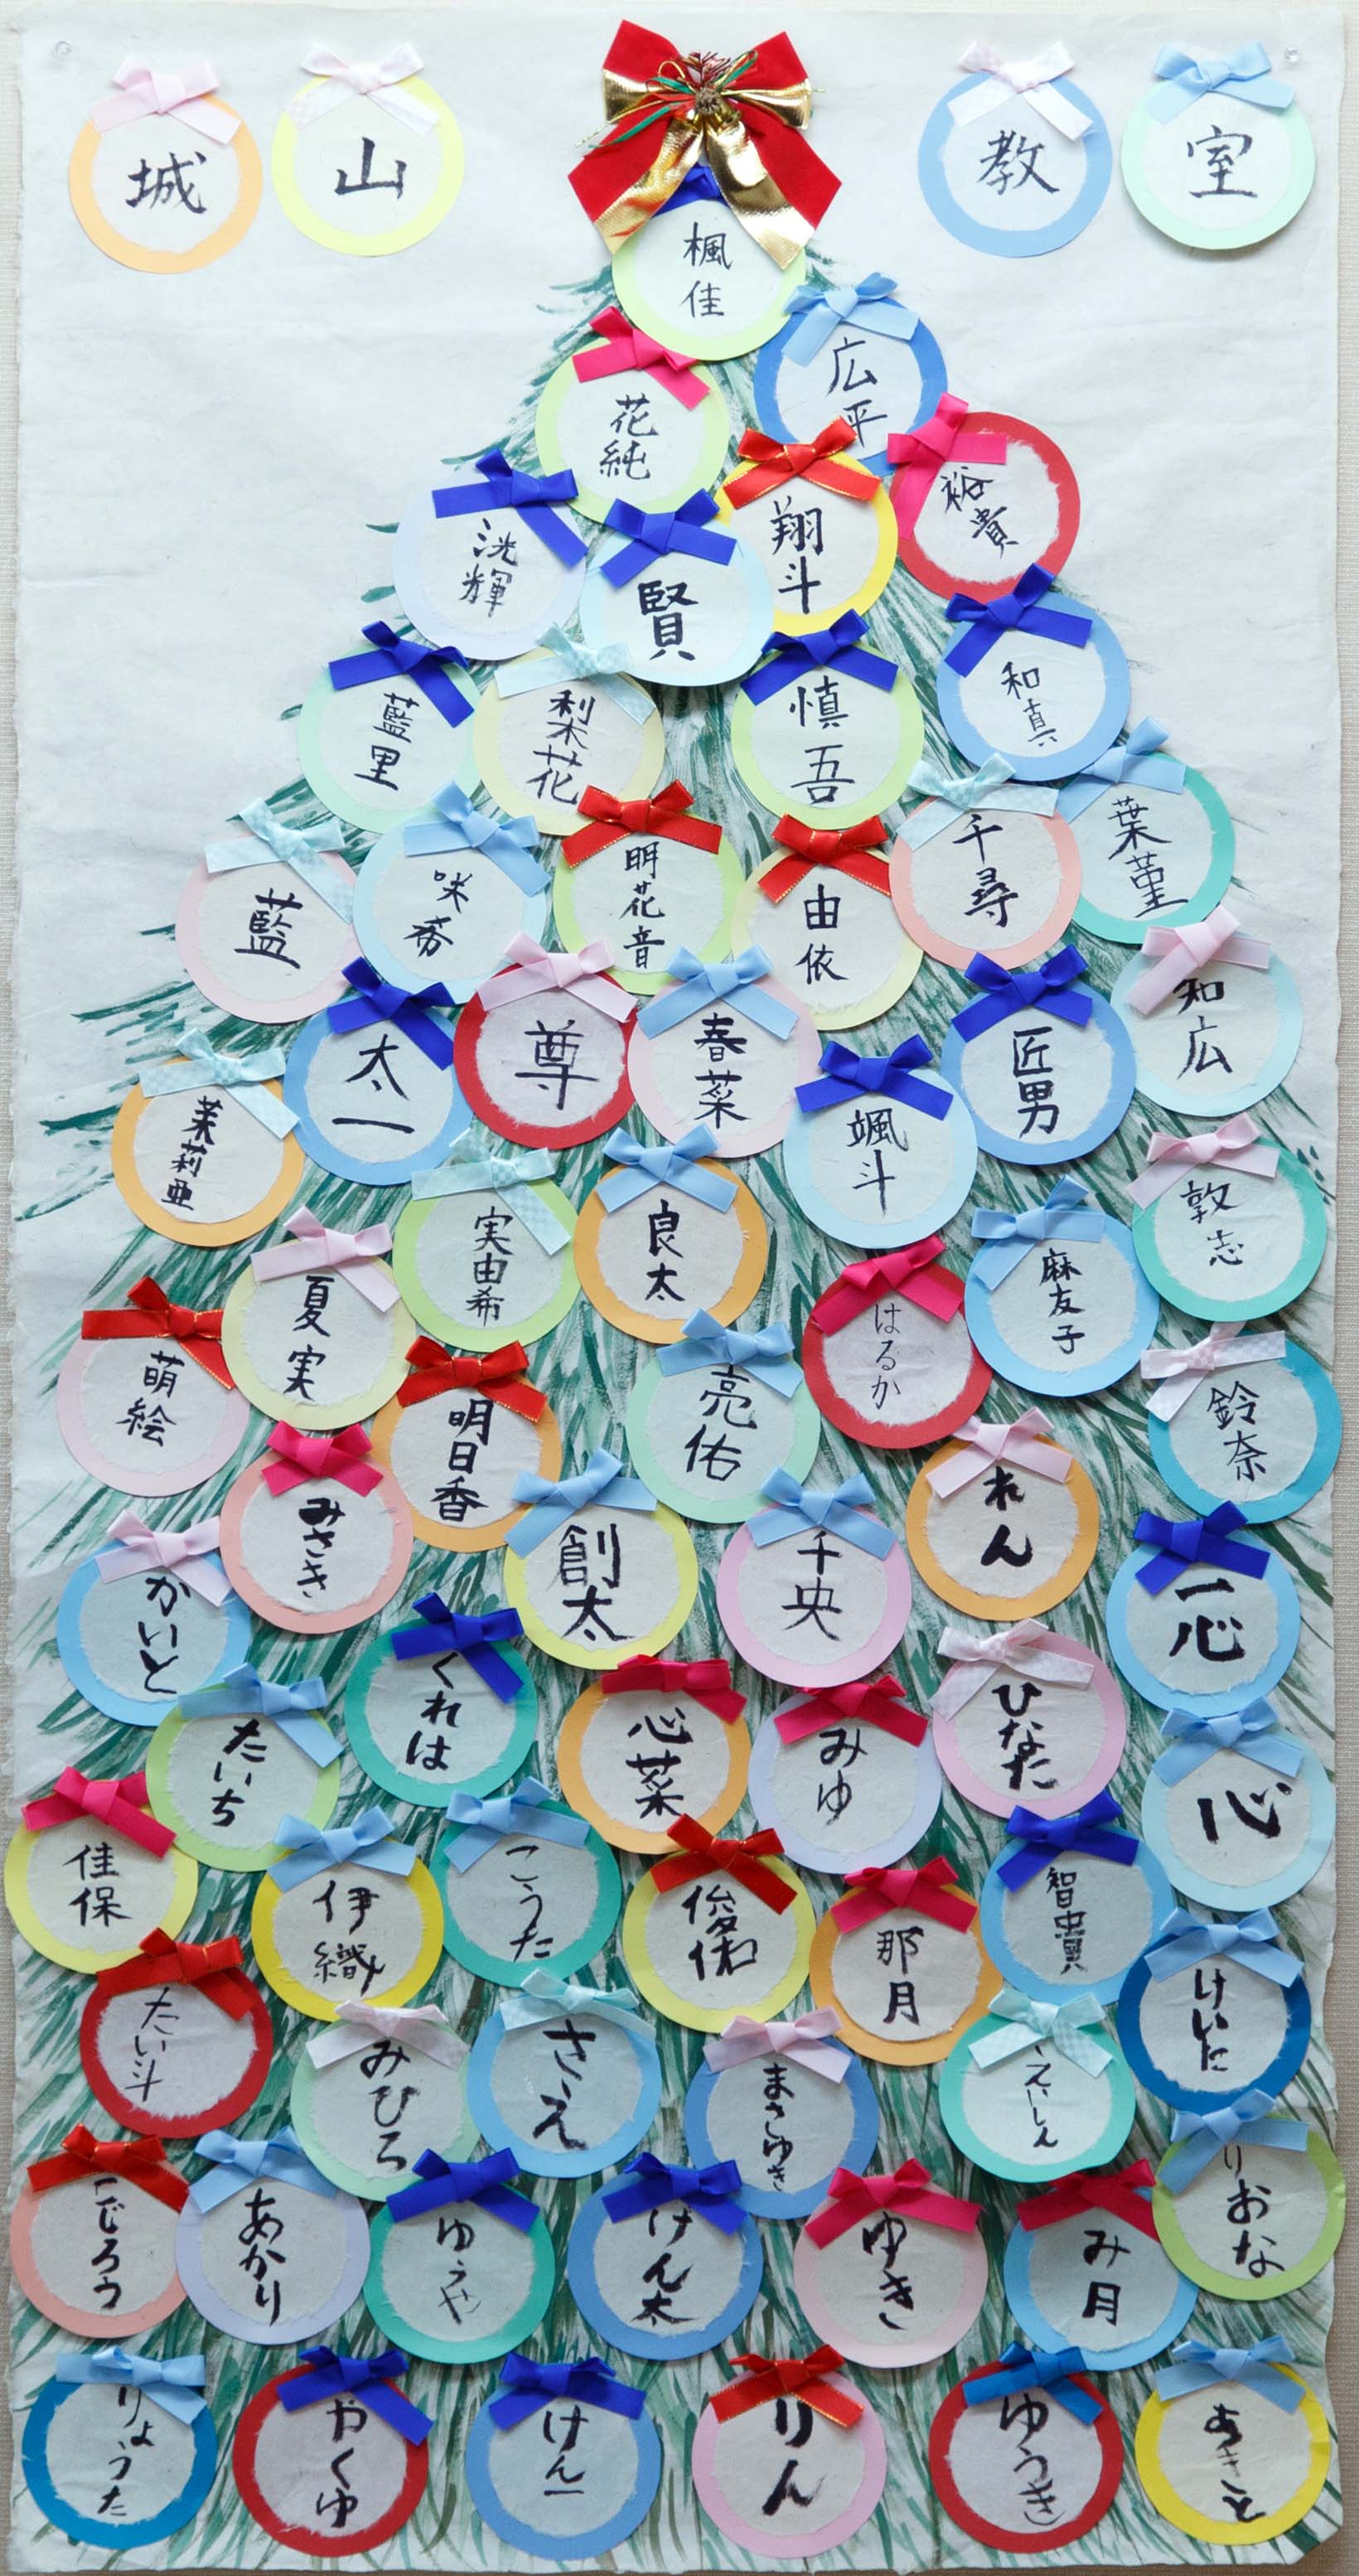 城山教室
楓佳
広平
花純
裕貴
翔斗
洸輝
賢
和真
慎吾
梨花
藍里
葉菫
千尋
由依
明花音
咲希
藍
知広
匠男
春菜
尊
太一
颯斗
茉莉亜
敦志
良太
実由希
麻友子
夏実
はるか
萌絵
亮佑
明日香
鈴奈
れん
みさき
創太
千央
一心
かいと
くれは
ひなた
心菜
みゆ
たいち
心
佳保
こうた
伊織
智貴
那月
けいた
たい斗
さえ
みひろ
まさゆき
えいしん
りおな
こじろう
あかり
ゆうや
けん太
ゆき
み月
りょうた
やくゆ
けん一
りん
ゆうき
あきと